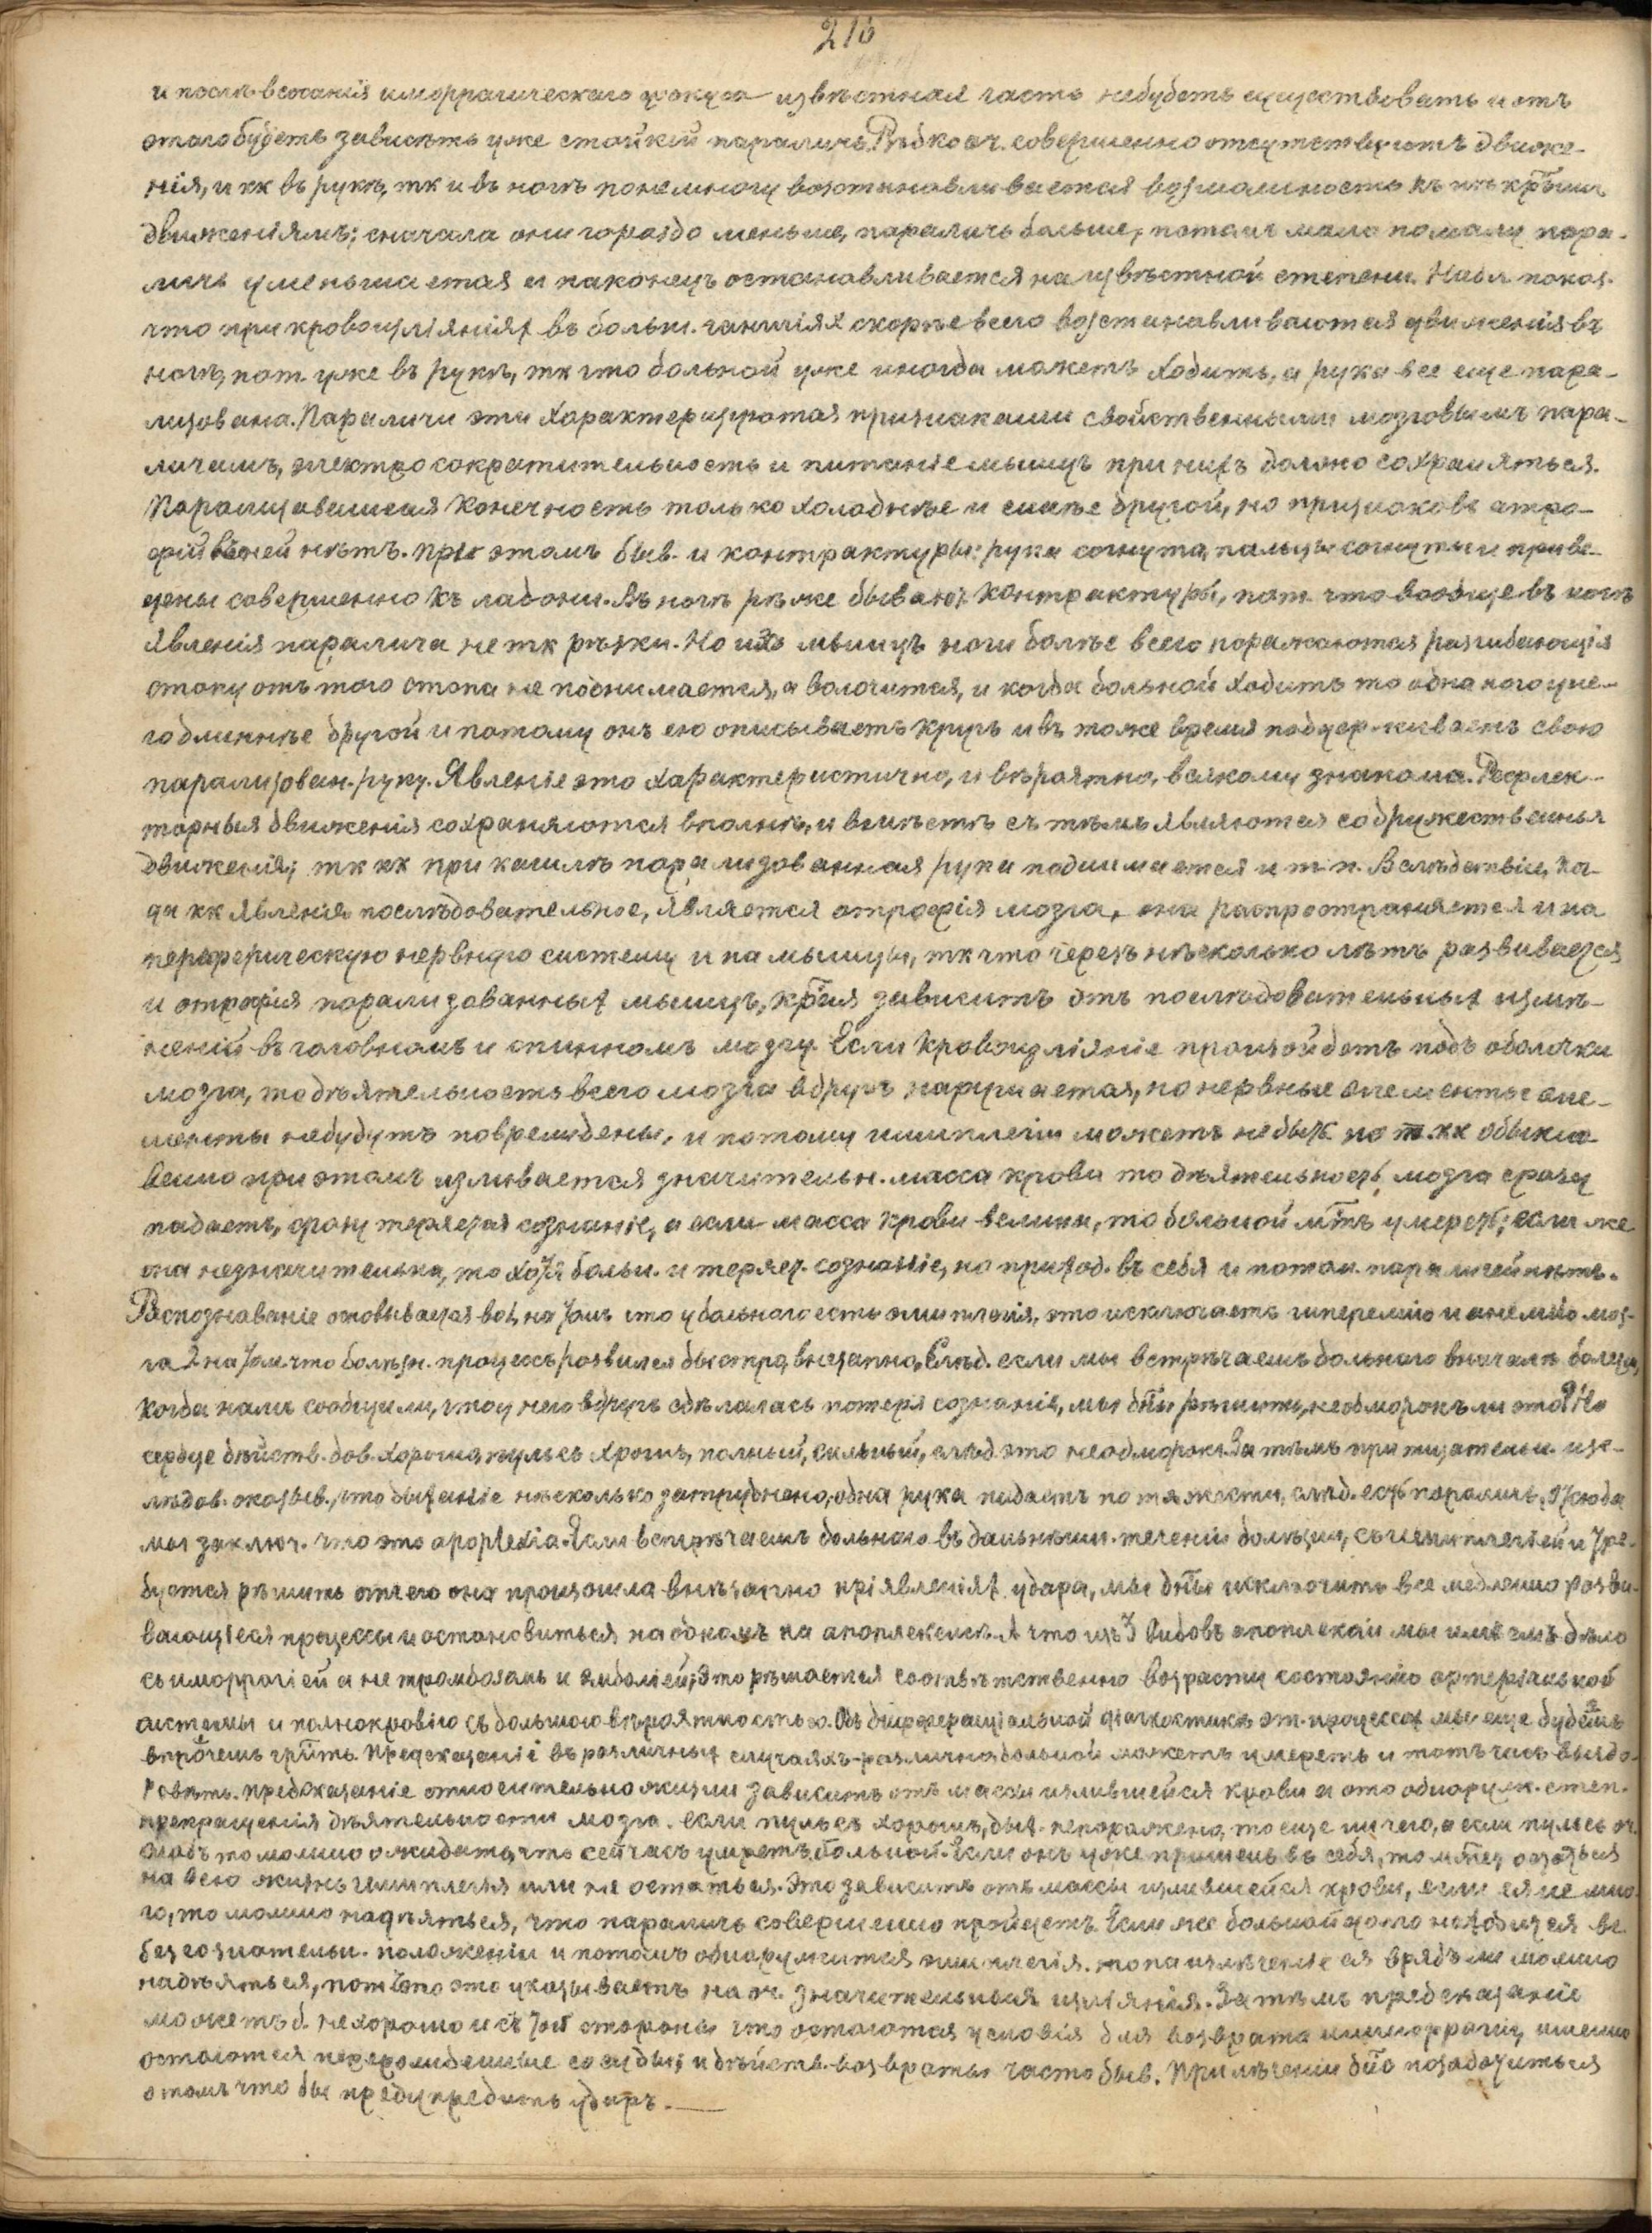 216
и послѣ всосанія гиморрагическаго фокуса извѣстная часть небудетъ существовать и отъ
этого будетъ зависѣть уже стойкій параличъ. Рѣдко оч. совершенно отсутствуютъ движе-
нія, и кк въ рукѣ, тк и въ ногѣ понемногу возстановливается возможность къ нѣкрымъ
движеніямъ; сначала они гораздо меньше, параличъ больше, потомъ мало помалу пара-
личъ уменьшается и наконецъ останавливается на извѣстной степени. Набл. показ.
что при кровоизліяніях въ больш. гангліях скорѣе всего возстанавливаются движенія въ
ногѣ, пот. уже въ рукѣ, тк что больной уже иногда можетъ ходить, а рука все еще пара-
лизована. Параличи эти характеризуются признаками свойственными мозговымъ пара-
личамъ, электросократительность и питаніе мышцъ при нихъ должно сохраняться.
Парализовавшаяся конечность только холоднѣе и синѣе другой, но признаковъ атро-
фіи въ ней нѣтъ. При этомъ быв. и контрактуры: рука согнута, пальцы согнуты и приве-
дены совершенно къ ладони. Въ ногѣ рѣже бывают контрактуры, пот. что вообще въ ногѣ
явленія паралича не тк рѣзки. Но изъ мышцъ ноги болѣе всего поражаются разгибающія
стопу отъ того стопа не поднимается, а волочится, и когда больной ходитъ то одна нога уже
годлиннѣе другой и потому онъ ею описываетъ кругъ и въ тоже время поддерживаетъ свою
парализован. руку. Явленіе это характеристично, и вѣроятно, всякому знакома. Рефлек-
торныя движенія сохраняются вполнѣ, и вмѣстѣ съ тѣмъ являются содружественныя
движенія; тк кк при кашлѣ парализованная рука поднимается и т. п. Вслѣдствіи, ко-
гда кк явленіе послѣдовательное, является атрофія мозга, она распространяется и на
переферическую нервную систему и на мышцы, тк что черезъ нѣсколько лѣтъ развивается
и атрофія парализованных мышцъ, края зависитъ отъ послѣдовательных измѣ-
неній въ головномъ и спинномъ мозгу. Если кровоизліяніе произойдетъ подъ оболочки
мозга, то дѣятельность всего мозга вдругъ нарушается, но нервные элементы эле-
менты небудутъ повреждены, и потому гимиплегіи можетъ не быть но т. кк обыкно-
венно при этомъ изливается значительн. масса крови то дѣятельность мозга сразу
падаетъ, сразу теряется сознаніе, а если масса крови велика, то больной мтъ умереть; если же
она незначительна, то хотя больн. и теряет. сознаніе, но приход. въ себя и потом. параличей нѣтъ.
Распознаваніе основывается 1) на томъ что у больного есть гимиплегія, это исключаетъ гиперемію и анемію моз-
га 2 на томъ что болѣзн. процессъ развился быстро, внезапно. Слѣд. если мы встрѣчаемъ больного вначалѣ болѣзни,
когда намъ сообщили, что у него вдругъ сдѣлалась потеря сознанія, мы дны рѣшить, необморокъ ли это? Но
сердце дѣйств. дов. хорошо, пульсъ хрошъ, полный, сильный, слѣд. это не обморокъ. За тѣмъ при тщательн. изс-
лѣдов. оказыв., что дыханіе нѣсколько затруднено, одна рука падаетъ по тяжести, слѣд. есть параличъ, отсюда
мы заключ. что это apoplexia. Если встрѣчаемъ больного въ дальнѣйш. теченіи болѣзни, съ гемиплегіей и тре-
буется рѣшить отчего она произошла внѣзапно при явленіях удара, мы дны исключить все медленно разви-
вающіеся процессы и остановиться на одномъ на апоплексіи. А что изъ 3 видовъ апоплексіи мы имѣемъ дѣло
съ гиморрагіей а не тромбозомъ и эмболіей; это рѣшается соотвѣтственно возрасту состоянію артеріальной
системы и полнокровію съ большою вѣроятностью. Объ дифференціальной діагностикѣ эт. процессов мы еще будемъ
впрочемъ грить. Предсказаніе въ различных случаяхъ различно, больной можетъ умереть и тотъ часъ выздо-
ровѣть. Предсказаніе относительно жизни зависитъ отъ массы излившейся крови а это обнаруж. степ.
прекращенія дѣятельности мозга. если пульсъ хорошъ, дых. непоражено, то еще ничего, а если пульсъ оч.
слабъ то можно ожидать, что сейчасъ умретъ больной. Если онъ уже пришелъ въ себя, то мтъ остаться
на всю жизнь гимиплегія или не остаться. Это зависитъ отъ массы излившейся крови, если ея не мно-
го, то можно надѣяться, что параличъ совершенно пройдетъ. Если же больной долго находился въ
безсознательн. положеніи и потомъ обнаружится гимиплегія. то на излѣченіе ея врядъ ли можно
надѣяться, пот. что это указываетъ на оч. значительныя изліянія. Затѣмъ предсказаніе
можетъ б. нехорошо и съ той стороны что остаются условія для возврата гиморрагіи, именно
остаются перерожденные сосуды; и дѣйств. возвраты часто быв. При лѣченіи дно позаботиться
о томъ что бы предупредить ударъ.